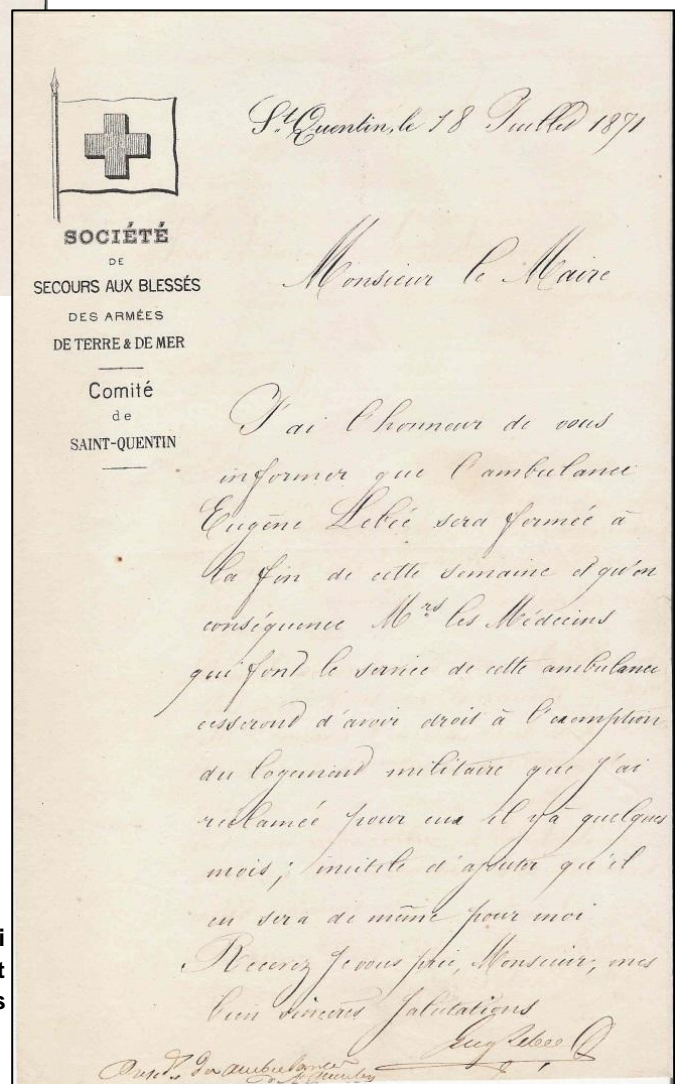 SOCIÉTÉ
DE
SECOURS AUX BLESSÉS
DES ARMÉES
DE TERRE & DE MER
Comité
de
SAINT-QUENTIN
St Quentin, le 18 Juillet 1871
Monsieur le Maire
J'ai l'honneur de vous
informer que l'ambulance
Eugène Lebée sera fermée à
la fin de cette semaine et qu'en
conséquence Mrs les Médecins
qui font le service de cette ambulance
cesseront d'avoir droit à l'exemption
du logement militaire que j'ai
réclamée pour eux il y a quelques
mois ; inutile d'ajouter qu'il
en sera de même pour moi
Recevez je vous prie, Monsieur, mes
bien sincères salutations
Eug Lebée
ambulances
de St Quentin
i
t
s